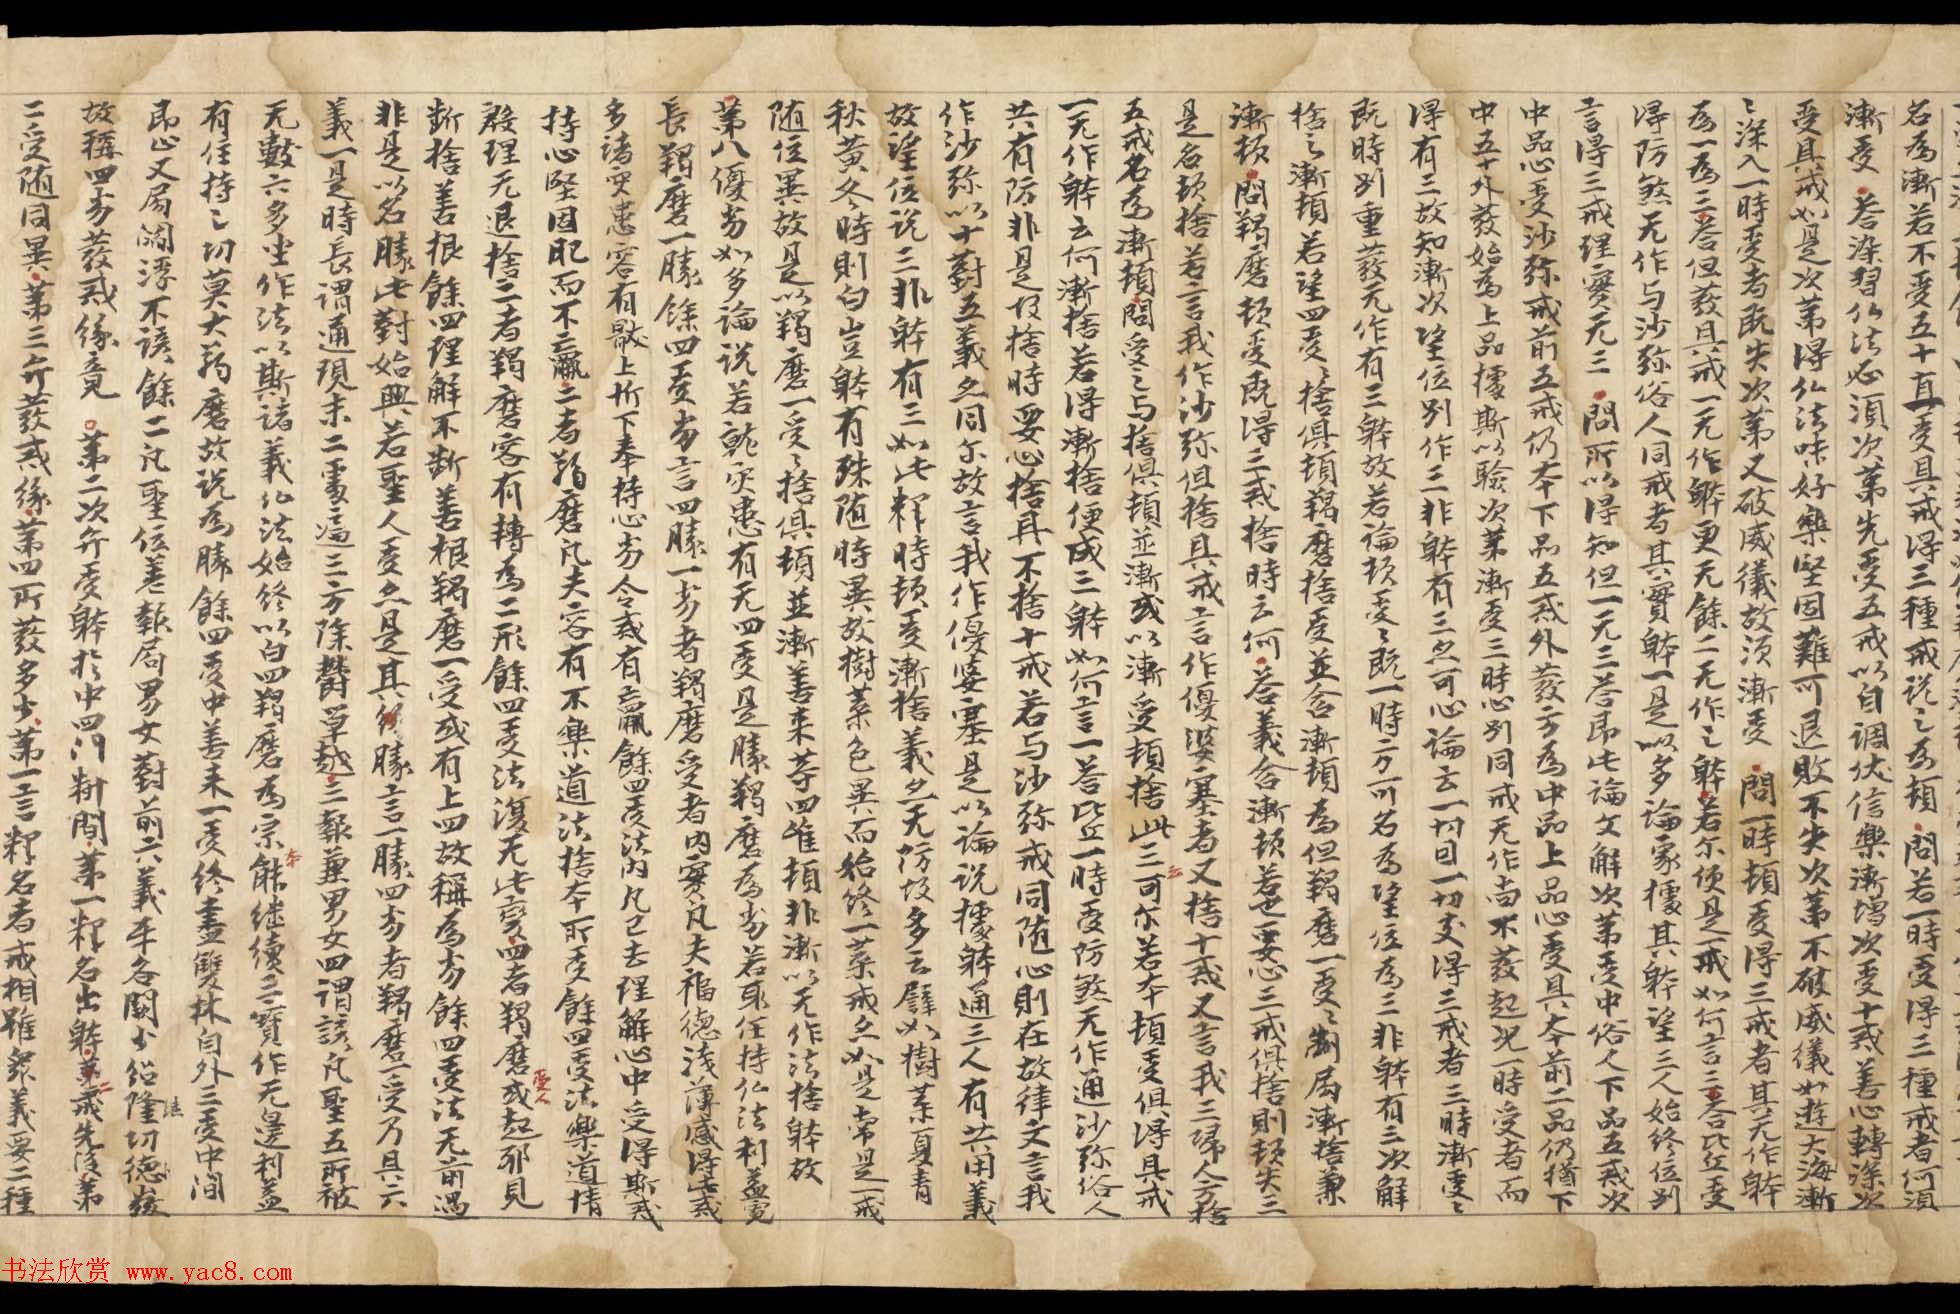 名為漸若不受五十直受具戒得三種戒説之為頓問若一時受得三種戒者何須
漸受荅染習仏法必須次第先受五戒以自調伏信樂漸増次受十戒善心轉深次
受具戒如是次第得仏法味好樂堅固難可退敗不失次第不破威儀如遊大海漸
〻深入一時受者既失次第又破威儀故須漸受問一時頓受得三戒者其无作躰
為一為三荅但發具戒一无作躰更无餘二无作之躰若尔便是一戒如何言三荅比丘受
得防煞无作与沙弥俗人同戒者其實躰一是以多論家據其躰望三人始終位別
言得三戒理實无三問所以得知但一无三荅即此論文解次第受中俗人下品五戒次
中品心受沙弥戒前五戒仍夲下品五戒外發五方為中品上品心受具夲前二品仍猶下
中五十外發始為上品據斯以驗次第漸受三時心別同戒无作尚不發起况一時受者而
得有三故知漸次望位別作三非躰有三怣可心論云一切目一切支得三戒者三時漸受〻
既時別重發无作有三躰故若論頓受〻既一時方可名為望位為三非躰有三次解
捨之漸頓若望四受〻捨俱頓羯磨捨受並含漸頓為但羯磨一受〻制局漸捨兼
漸頓問羯磨頓受既得三戒捨時云何荅義含漸頓若也要心三戒俱捨則頓失三
是名頓捨若言我作沙弥但捨具戒言作優婆塞者又捨十戒又言我三歸人方捨
五戒名為漸頓問受之与捨俱頓並漸或以漸受頓捨此三可尔若夲頓受俱得具戒
一无作躰云何漸捨若得漸捨便成三躰如何言一荅比丘一時受防煞无作通沙弥俗人
共有防非是故捨時要心捨具不捨十戒若与沙弥戒同随心則在故律文言我
作沙弥以十對五義亦同尔故言我作優婆塞是以論説據躰通三人有共用義
故望位説三非躰有三如此釋時頓受漸捨義亦无防故多云譬如樹葉夏青
秋黄冬時則白豈躰有殊随時異故樹葉色異而始終一葉戒亦如是常是一戒
随位異故是以羯磨一受〻捨俱頓並漸善来等四唯頓非漸以无作法捨躰故
第八優劣如多論説若就災患有无四受是勝羯磨為劣若取住持仏法利益寛
長羯磨一勝餘四受劣言四勝一劣者羯磨受者内實凡夫福德淺薄感得此戒
多諸災患容有毀上折下奉持心劣令戒有羸餘四受法内凡已去理解心中受得斯戒
持心堅固肥而不羸二者羯磨凡夫容有不樂道法捨夲所受餘四受法樂道情
殷理无退捨三者羯磨容有轉為二形餘四受法復无此變四者羯磨或起邪見
断捨善根餘四理解不断善根羯磨一受或有上四故稱為劣餘四受法无前過
非是以名勝此對始興若聖人受亦是其勝言一勝四劣者羯磨一受乃具六
義一是時長謂通現未二處遍三方除欝單越三報兼男女四謂該凡聖五所被
无數六多坐作法以斯諸義仏法始終以白四羯磨為宗能継續三寶作无邊利益
有住持之功莫大羯磨故説為勝餘四受中善来一受終盡雙林自外三受中間
即止又局閻浮不該餘二凡聖位差報局男女對前六義車各闕少紹隆功德發
故稱四劣發戒縁竟第二次弁受躰於中四門料間第一釋名出躰第二戒先後第
二受随同異第三弁發戒縁第四所發多少第一言釋名者戒相雖衆義要二種
书法欣赏 www.yac8.com